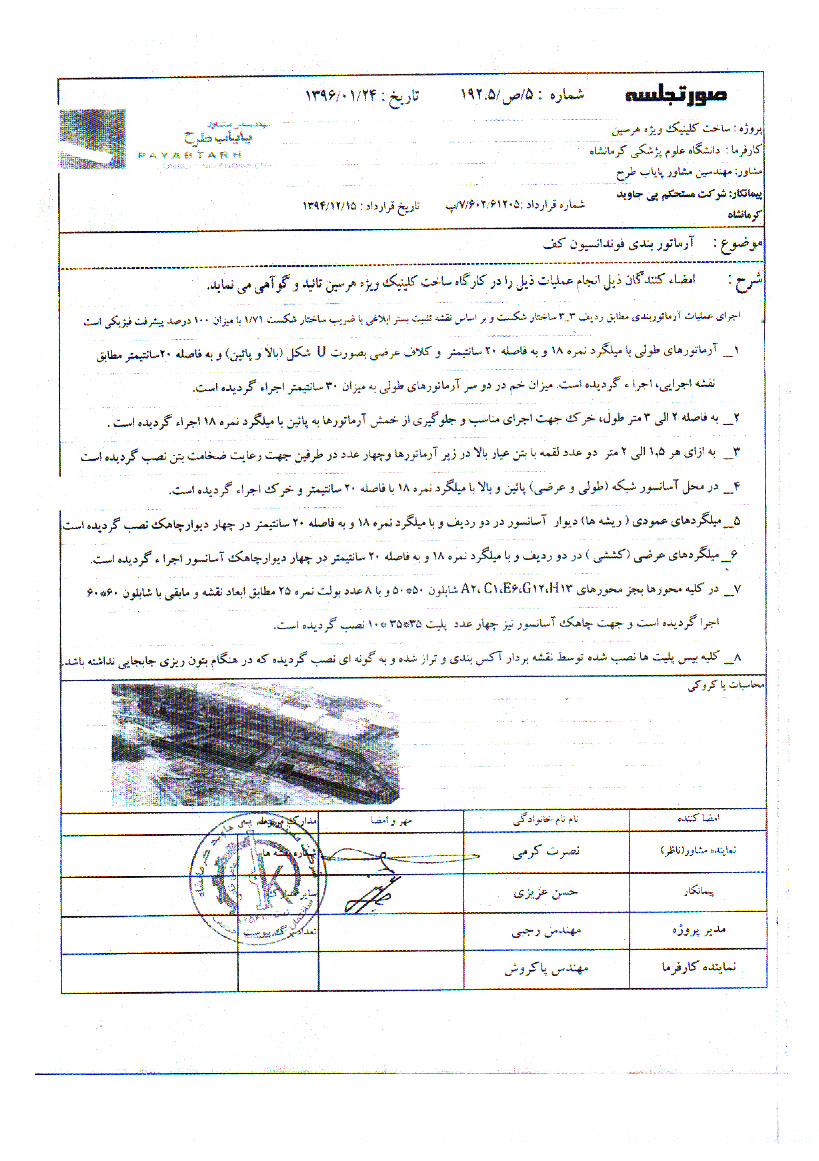 صورتجلسه شماره : ۵/ص/۱۹۲.۵ تاریخ : ۱۳۹۶/۰۱/۲۴
پروژه : ساخت کلینیک ویژه هرسین
مهندسین مشاور
پایاب طرح
PAYABTARH
کارفرما : دانشگاه علوم پزشکی کرمانشاه
مشاور: مهندسین مشاور پایاب طرح
پیمانکار: شرکت مستحکم پی جاوید کرمانشاه
شماره قرارداد :۷/۶۰۲/۶۱۲۰۵/پ تاریخ قرارداد : ۱۳۹۴/۱۲/۱۵
موضوع : آرماتور بندی فوندانسیون کف
شرح : امضاء کنندگان ذیل انجام عملیات ذیل را در کارگاه ساخت کلینیک ویژه هرسین تائید و گوآهی می نماید.
اجرای عملیات آرماتوربندی مطابق ردیف ۳_۳ ساختار شکست و بر اساس نقشه تثبت بستر ابلاغی با ضریب ساختار شکست ۱/۷۱ با میزان ۱۰۰ درصد پیشرفت فیزیکی است
۱_ آرماتورهای طولی با میلگرد نمره ۱۸ و به فاصله ۲۰ سانتیمتر و کلاف عرضی بصورت U شکل (بالا و پائین) و به فاصله ۲۰سانتیمتر مطابق
نقشه اجرایی، اجرا ء گردیده است. میزان خم در دو سر آرماتورهای طولی به میزان ۳۰ سانتیمتر اجراء گردیده است.
۲_ به فاصله ۲ الی ۳ متر طول، خرک جهت اجرای مناسب و جلوگیری از خمش آرماتورها به پائین با میلگرد نمره ۱۸ اجراء گردیده است .
۳_ به ازای هر ۱،۵ الی ۲ متر دو عدد لقمه با بتن عیار بالا در زیر آرماتورها وچهار عدد در طرفین جهت رعایت ضخامت بتن نصب گردیده است
۴_ در محل آسانسور شبکه (طولی و عرضی) پائین و بالا با میلگرد نمره ۱۸ با فاصله ۲۰ سانتیمتر و خرک اجراء گردیده است.
۵_ میلگردهای عمودی ( ریشه ها) دیوار آسانسور در دو ردیف و با میلگرد نمره ۱۸ و به فاصله ۲۰ سانتیمتر در چهار دیوارچاهک نصب گردیده است
۶_ میلگردهای عرضی (کششی ) در دو ردیف و با میلگرد نمره ۱۸ و به فاصله ۲۰ سانتیمتر در چهار دیوارچاهک آسانسور اجرا ء گردیده است.
۷_ در کلیه محورها بجز محورهای A۲، C۱،E۶،G۱۲،H۱۳ شابلون ۵۰*۵۰ و با ۸ عدد بولت نمره ۲۵ مطابق ابعاد نقشه و مابقی با شابلون ۶۰*۶۰
اجرا گردیده است و جهت چاهک آسانسور نیز چهار عدد پلیت ۳۵*۳۵*۱۰ نصب گردیده است.
۸_ کلیه بیس پلیت ها نصب شده توسط نقشه بردار آکس بندی و تراز شده و به گونه ای نصب گردیده که در هنگام بتون ریزی جابجایی نداشته باشد.
محاسبات یا کروکی
امضا کننده نام نام خانوادگی مهر و امضا مدارک
نماینده مشاور(ناظر) نصرت کرمی
پیمانکار حسن عزیزی سایر
مدیر پروژه مهندس رجبی تعداد برگ پیوست
نماینده کارفرما مهندس پاکروش